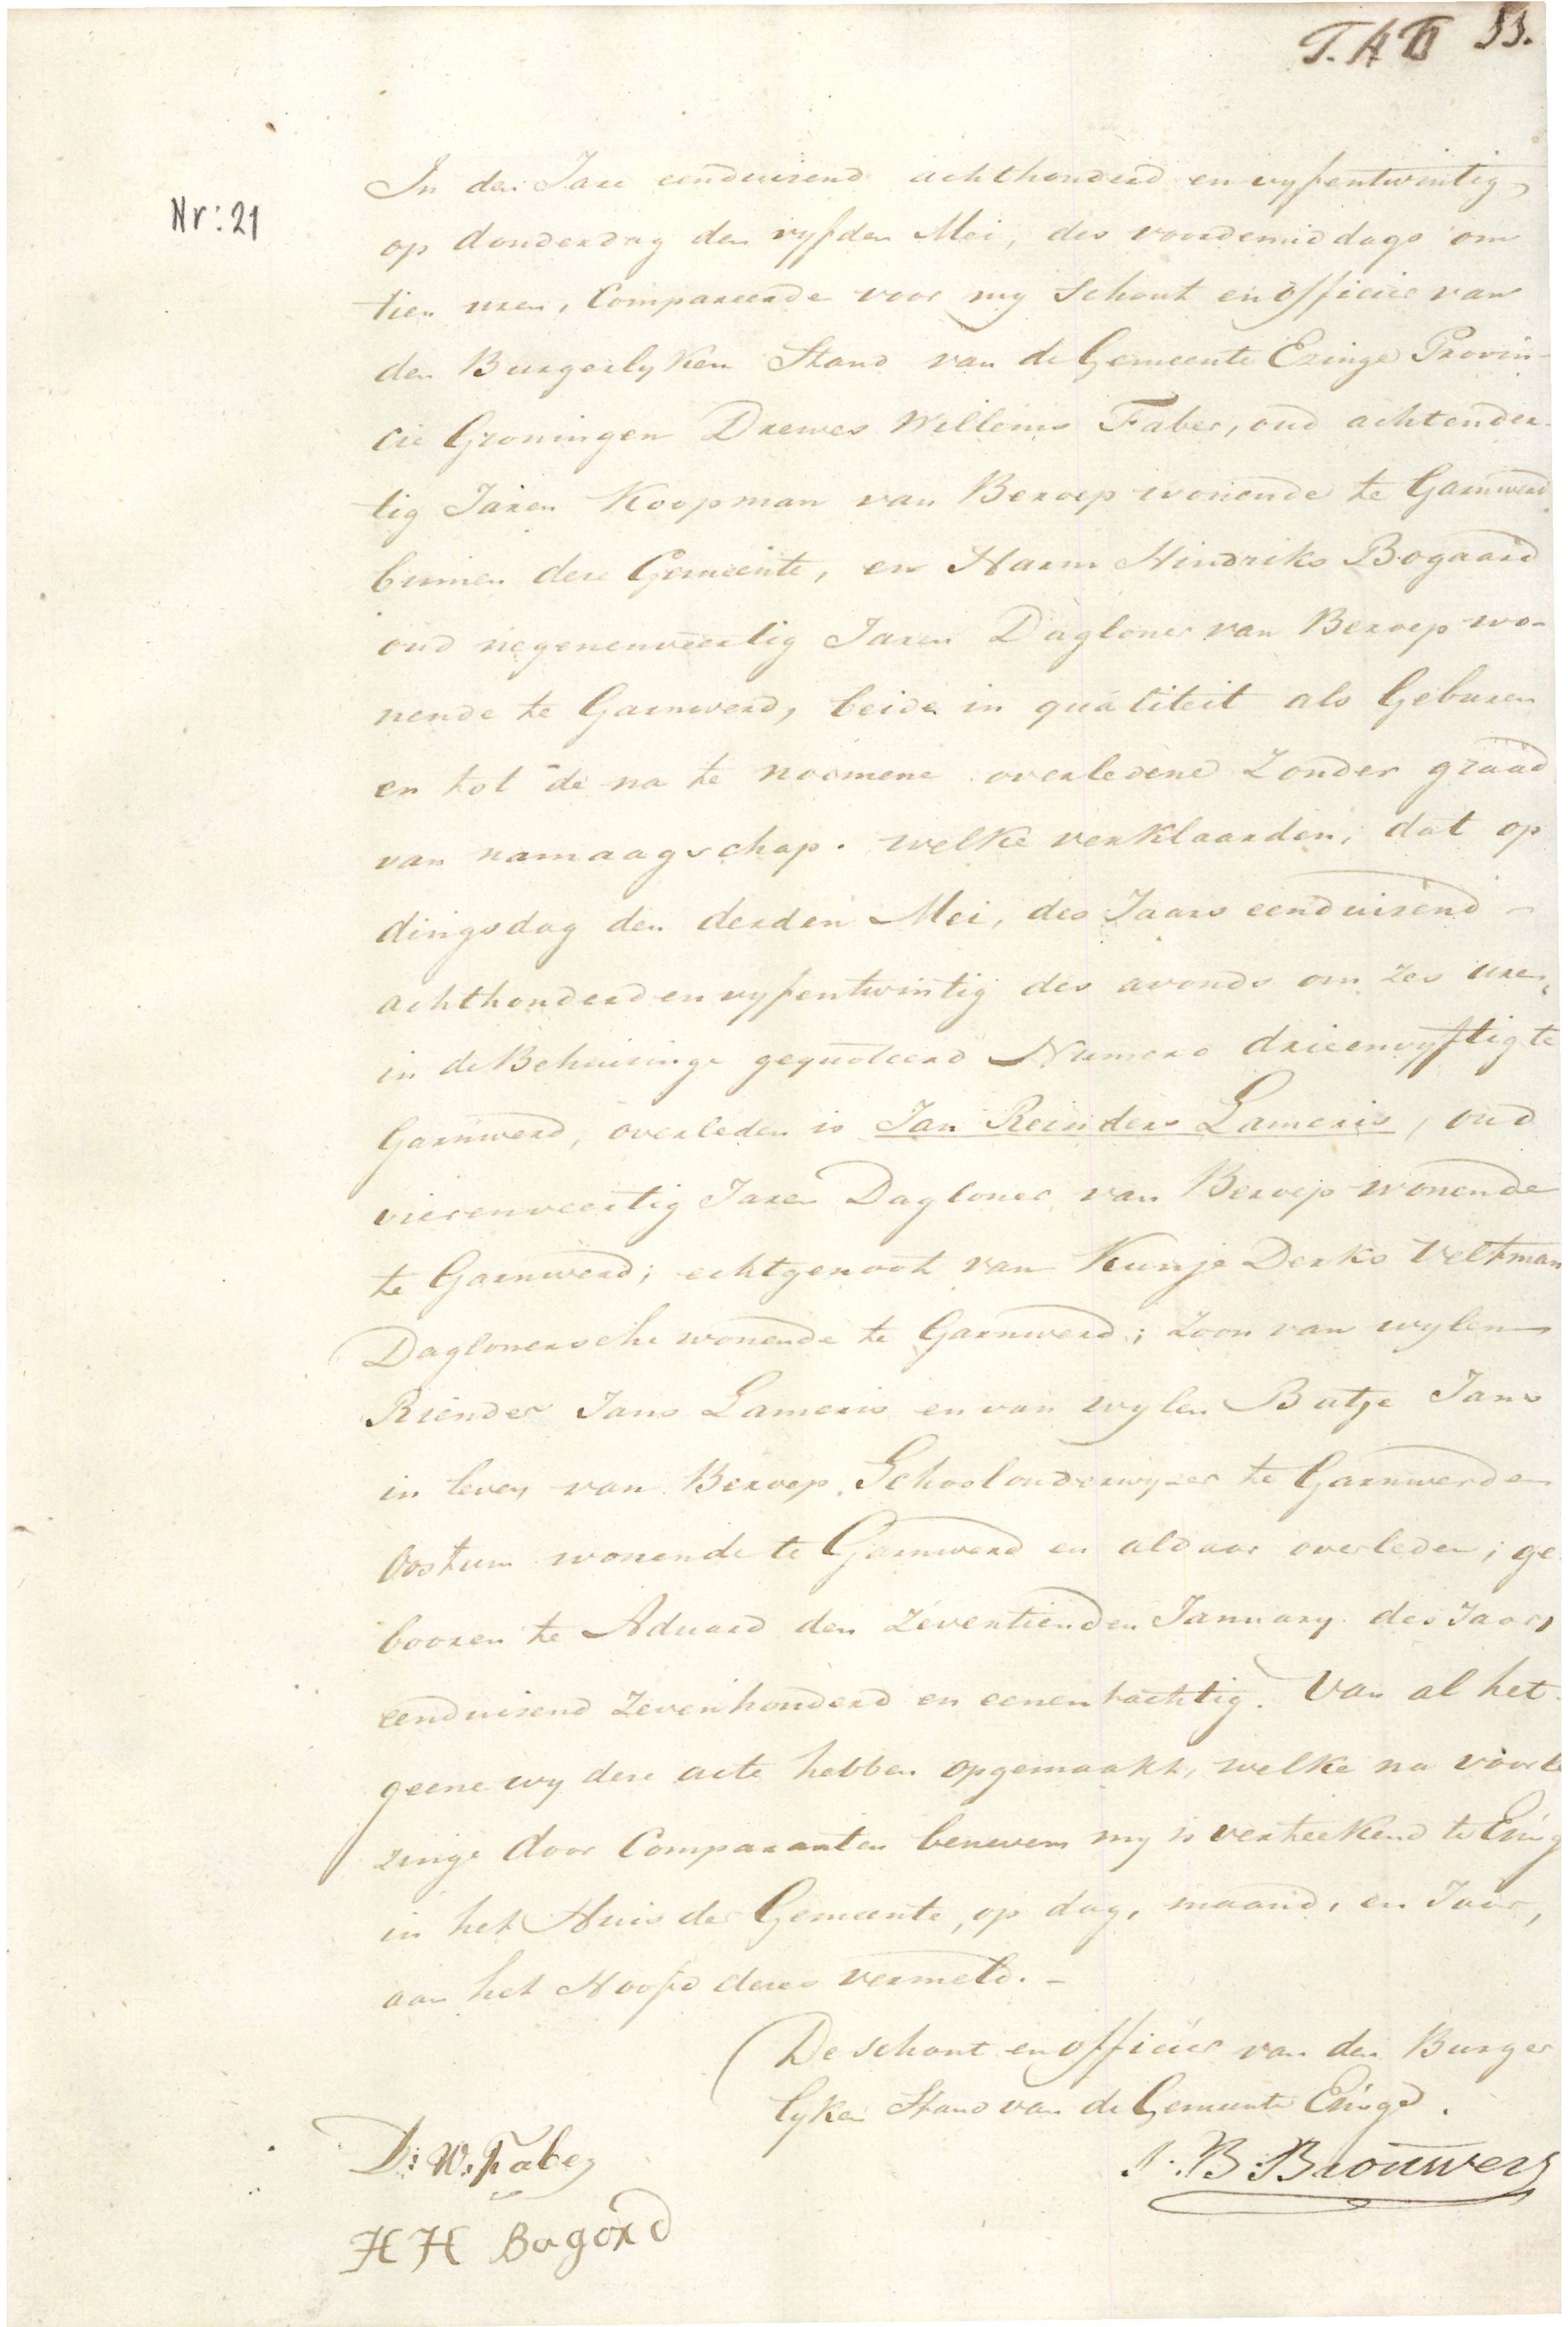 Nr: 21
In den Jare eenduisend achthonderd en vyfentwintig
op donderdag den vyfden Mei, des voordemiddags om
tien uren, Compareerde voor my Schout en officier van
den Burgerlyken Stand van de Gemeente Ezinge Provin-
cie Groningen Drewes Willems Faber, oud achtender-
tig Jaren Koopman van Beroep wonende te Garnwerd
binnen dese Gemeente, en Harm Hindriks Bogaard
oud negenenveertig Jaren Dagloner van Beroep wo-
nende te Garnwerd, beide in qualiteit als Geburen
en tot de na te noemene overledene zonder graad
van namaagschap. welke verklaarden, dat op
dingsdag den derden Mei, des Jaars eenduisend -
achthonderd en vyfentwintig des avonds om zes uren,
in de Behuisinge gequoteerd Numero drieenvyftig te
Garnwerd, overleden is Jan Reinders Lameris, oud
vierenveertig Jaren Dagloner van Beroep wonende
te Garnwerd; echtgenoot van Kunje Derks Veltman
Daglonersche wonende te Garnwerd; zoon van wylen
Riender Jans Lameris en van wylen Batje Jans
in leven van Beroep Schoolonderwyzer te Garnwerd en
Oostum wonende te Garnwerd en aldaar overleden; ge
booren te Aduard den zeventienden January des Jaars
eenduisend zevenhonderd en eenentachtig. Van al het
geene wy dese acte hebben opgemaakt, welke na voorle
zinge door Comparanten benevens my is verteekend te Ezing
in het Huis der Gemeente, op dag, maand, en Jaar,
aan het Hoofd deses vermeld. -
De schout en officier van den Burger
lyken Stand van de Gemeente Ezinge.
D: W. Faber
J. B. Brouwers
H H Bogord